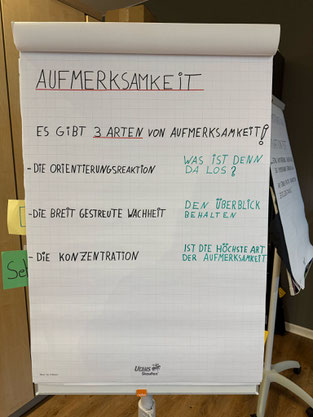 AUFMERKSAMKEIT
ES GIBT 3 ARTEN VON AUFMERKSAMKEIT!
- DIE ORIENTIERUNGSREAKTION
WAS IST DENN
DA LOS?
- DIE BREIT GESTREUTE WACHHEIT
DEN ÜBERBLICK
BEHALTEN
- DIE KONZENTRATION
IST DIE HÖCHSTE ART
DER AUFMERKSAMKEIT
Sel
ULLIUS